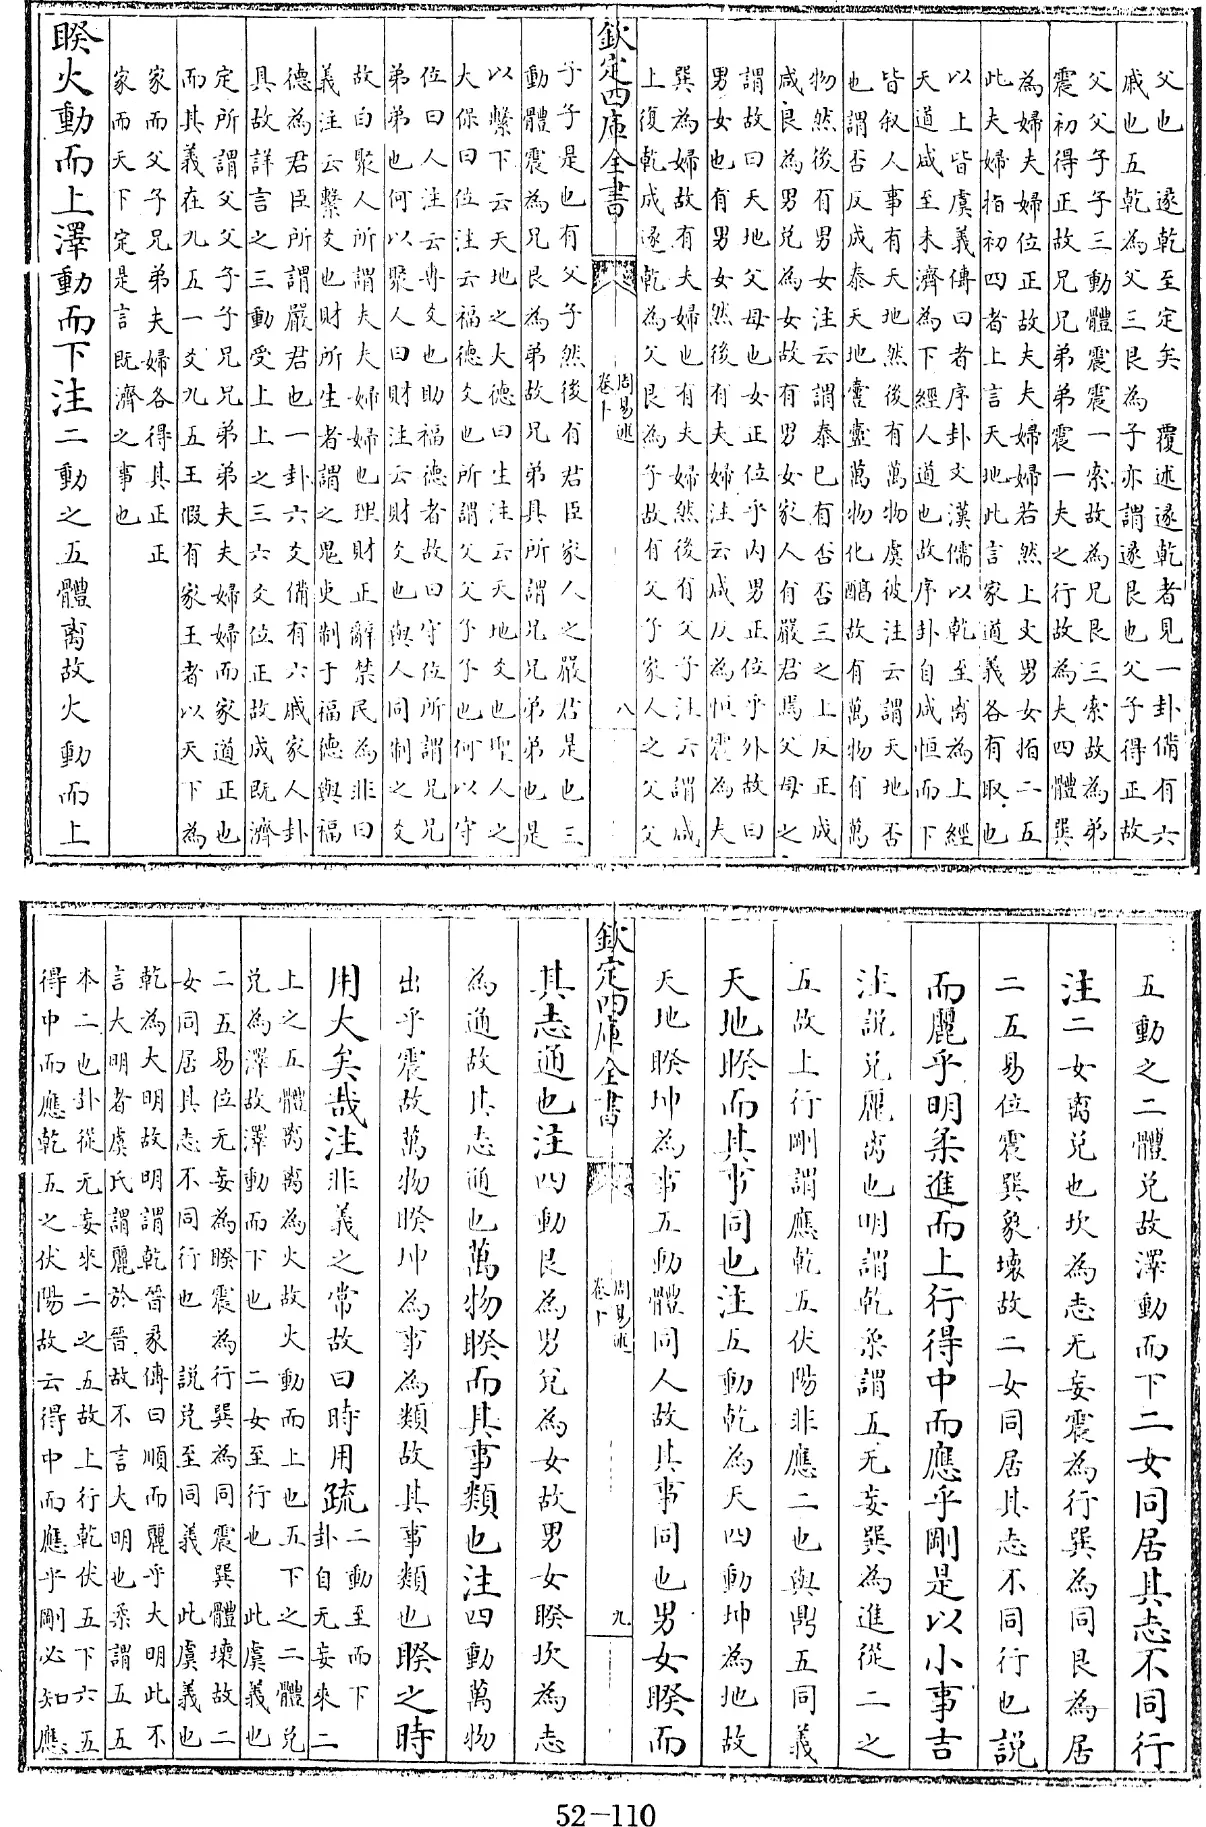 父也 遂乾至定矣 覆述遂乾者見一卦備有六
戚也五乾為父三艮為子亦謂遂艮也父子得正故
父父子子三動體震震一索故為兄艮三索故為弟
震初得正故兄兄弟弟震一夫之行故為夫四體巽
為婦夫婦位正故夫夫婦婦若然上文男女指二五
此夫婦指初四者上言天地此言家道義各有取也
以上皆虞義傳曰者序卦文漢儒以乾至离為上經
天道咸至未濟為下經人道也故序卦自咸恒而下
皆叙人事有天地然後有萬物虞彼注云謂天地否
也謂否反成泰天地壹𡔷萬物化醕故有萬物有萬
物然後有男女注云謂泰已有否否三之上反正成
咸艮為男兌為女故有男女家人有嚴君焉父母之
謂故曰天地父母也女正位乎内男正位乎外故曰
男女也有男女然後有夫婦注云咸反為恒震為夫
巽為婦故有夫婦也有夫婦然後有父子注云謂咸
上復乾成遂乾為父艮為子故有父子家人之父父
欽定四庫全書
周易述
卷十
八
子子是也有父子然後有君臣家人之嚴君是也三
動體震為兄艮為弟故兄弟具所謂兄兄弟弟也是
以繫下云天地之大德曰生注云天地爻也聖人之
大保曰位注云福德爻也所謂父父子子也何以守
位曰人注云專爻也助福德者故曰守位所謂兄兄
弟弟也何以聚人曰財注云財爻也與人同制之爻
故曰聚人所謂夫夫婦婦也理財正辭禁民為非曰
義注云繫爻也財所生者謂之鬼吏制于福德與福
德為君臣所謂嚴君也一卦六爻備有六戚家人卦
具故詳言之三動受上上之三六爻位正故成既濟
定所謂父父子子兄兄弟弟夫夫婦婦而家道正也
而其義在九五一爻九五王假有家王者以天下為
家而父子兄弟夫婦各得其正正
家而天下定是言既濟之事也
睽火動而上澤動而下注二動之五體离故火動而上
五動之二體兌故澤動而下二女同居其志不同行
注二女离兌也坎為志无妄震為行巽為同艮為居
二五易位震巽象壞故二女同居其志不同行也説
而麗乎明柔進而上行得中而應乎剛是以小事吉
注説兌麗离也明謂乾柔謂五无妄巽為進從二之
五故上行剛謂應乾五伏陽非應二也與鼎五同義
天地睽而其事同也注五動乾為天四動坤為地故
天地睽坤為事五動體同人故其事同也男女睽而
欽定四庫全書
周易述
卷十
九
其志通也注四動艮為男兌為女故男女睽坎為志
為通故其志通也萬物睽而其事類也注四動萬物
出乎震故萬物睽坤為事為類故其事類也睽之時
用大矣哉注非義之常故曰時用疏二動至而下
卦自无妄來二
上之五體离离為火故火動而上也五下之二體兌
兌為澤故澤動而下也 二女至行也 此虞義也
二五易位无妄為睽震為行巽為同震巽體壞故二
女同居其志不同行也 説兌至同義 此虞義也
乾為大明故明謂乾晉彖傳曰順而麗乎大明此不
言大明者虞氏謂麗於晉故不言大明也柔謂五五
本二也卦從无妄來二之五故上行乾伏五下六五
得中而應乾五之伏陽故云得中而應乎剛必知應
52-110